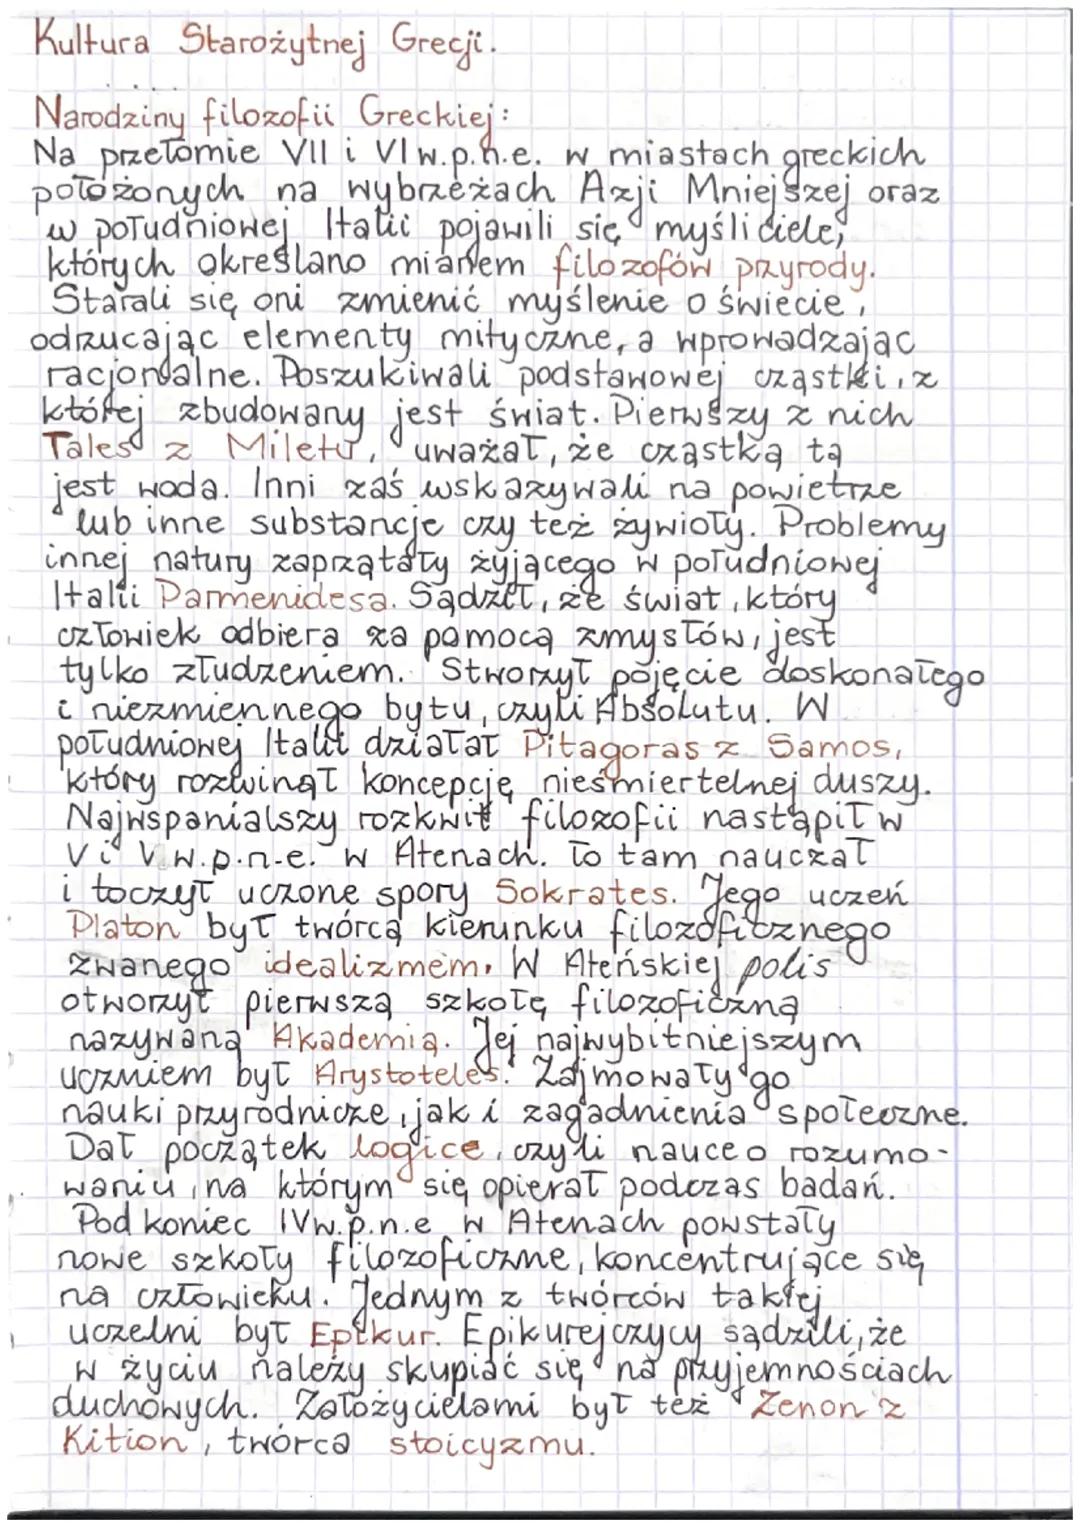 Kultura Starożytnej Grecji.
Narodziny filozofii Greckiej:
Na przełomie VII i VI w.p.n.e. w miastach greckich
położonych na wybrzeżach Azji Mniejszej oraz
w południowej Italii pojawili się myśliciele,
których określano mianem filozofów przyrody.
Starali się oni zmienić myślenie o świecie,
odrzucając elementy mityczne, a wprowadzając
racjonalne. Poszukiwali podstawowej cząstki, z
której zbudowany jest świat. Pierwszy z nich
Tales z Miletu, uważał, że cząstką tą
jest woda. Inni zaś wskazywali na powietrze
lub inne substancje czy też żywioły. Problemy
innej natury zaprzątały żyjącego w południowej
Italii Parmenidesa. Sądził, że świat, który
człowiek odbiera za pomocą zmysłów, jest
tylko złudzeniem. Stworzył pojęcie doskonałego
i niezmiennego bytu, czyli Absolutu. W
południowej Italii działał Pitagoras z Samos,
który rozwinął koncepcję nieśmiertelnej duszy.
Najwspanialszy rozkwit filozofii nastąpił w
V i V w.p.n.e. w Atenach. To tam nauczał
i toczył uczone spory Sokrates. Jego uczeń
Platon był twórcą kierunku filozoficznego
zwanego idealizmem. W Ateńskiej polis
otworzył pierwszą szkołę filozoficzną
nazywaną Akademią. Jej najwybitniejszym
uczniem był Arystoteles. Zajmowały go
nauki przyrodnicze, jak i zagadnienia społeczne.
Dał początek logice, czyli nauce o rozumo-
waniu, na którym się opierał podczas badań.
Pod koniec IV w.p.n.e w Atenach powstały
nowe szkoły filozoficzne, koncentrujące się
na człowieku. Jednym z twórców takiej
uczelni był Epikur. Epikurejczycy sądzili, że
w życiu należy skupiać się na przyjemnościach
duchowych. Założycielami był też Zenon z
Kition, twórca stoicyzmu.